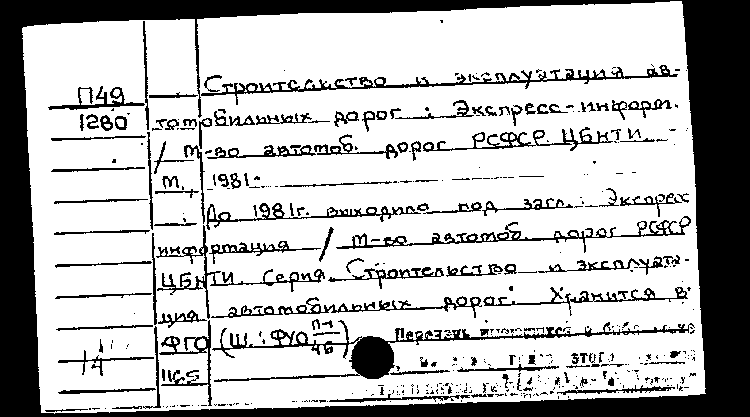 Строительство и эксплуатация ав-
П49
1280 томобильных дорог : Экспресс-информ.
/ М-во автомоб. дорог РСФСР, ЦБНТИ. -
М., 1981-
До 1981г. выходило под загл.: Экспресс
информация / М-во автомоб. дорог РСФСР
ЦБНТИ. Серия. Строительство и эксплуата-
ция автомобильных дорог. Хранится в
ФГО (Ш.: ФУО П-1/46) Перечень имеющихся в
14 этого
1165